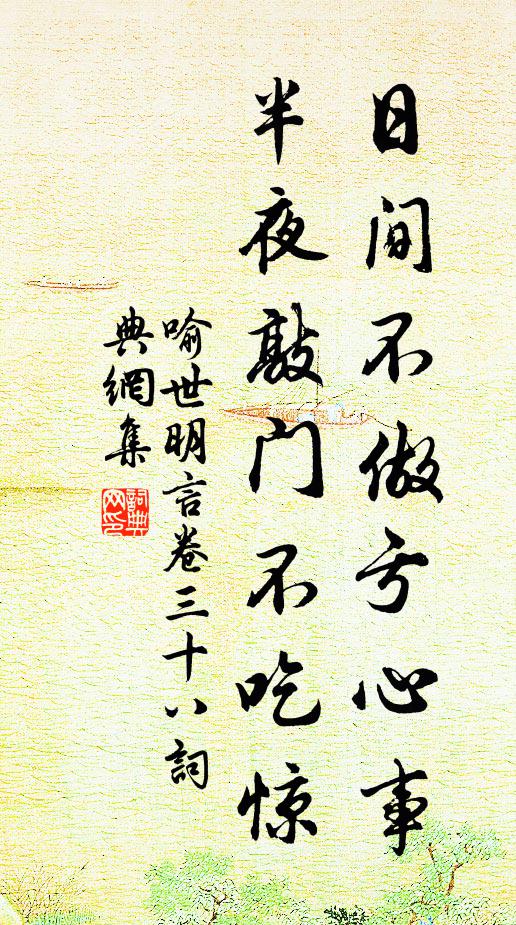 日间不做亏心事
半夜敲门不吃惊
喻世明言卷三十八詞
典網集
詞典
网印